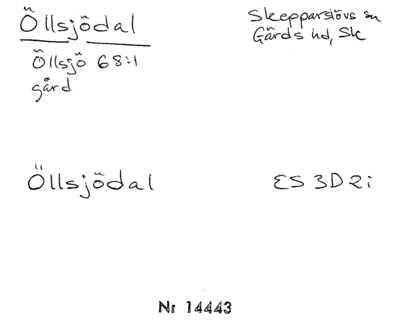 Öllsjödal
Skepparslövs sn
Öllsjö 68:1
Gärds hd, Sk
gård
Öllsjödal
ES 3D2i
Nr 14443